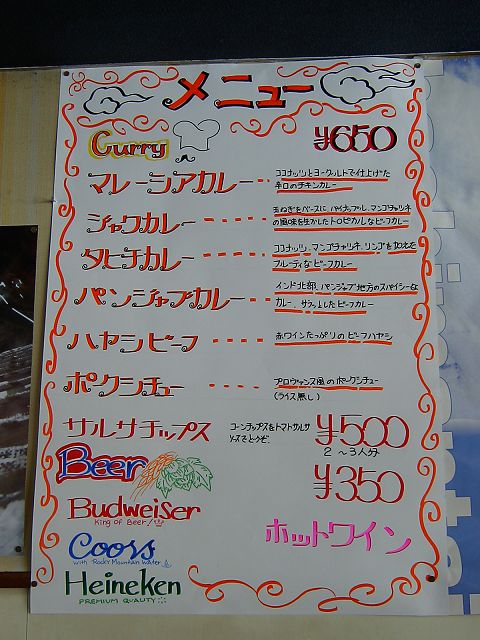 メニュー
Curry ¥650
マレーシアカレー ココナッツとヨーグルトで仕上げた
辛口のチキンカレー
ジャワカレー 玉ねぎをベースに、パイナップル、マンゴチャツネ
の風味を生かしたトロピカルなビーフカレー
タヒチカレー ココナッツ、マンゴチャツネ、リンゴを加えた
フルーティなビーフカレー
パンジャブカレー インド北部、パンジャブ地方のスパイシーな
カレー、サラッとしたビーフカレー
ハヤシビーフ 赤ワインたっぷりのビーフハヤシ
ポークシチュー プロヴァンス風のポークシチュー
(ライス無し)
サルサチップス コーンチップスをトマトサルサ
ソースでどうぞ。 ¥500
2〜3人分
Beer ¥350
Budweiser
King of Beer!
Coors
with Rocky Mountain Water
Heineken
PREMIUM QUALITY
ホットワイン